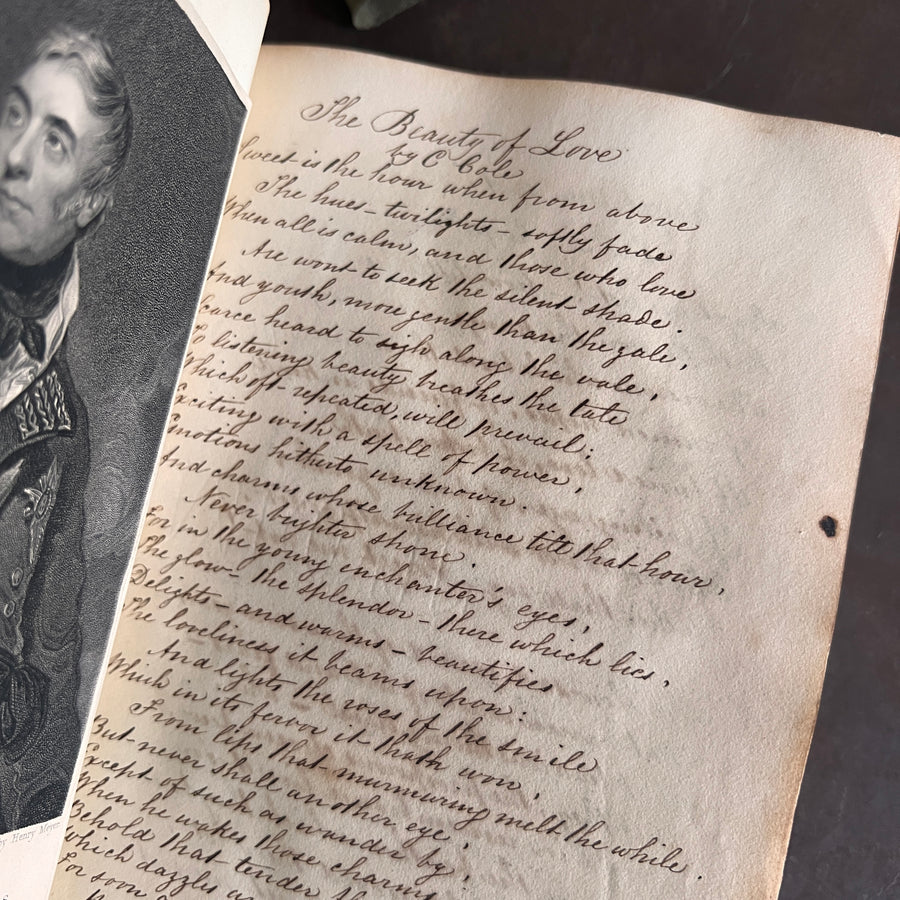 The Beauty of Love
by C Cole
Sweet is the hour when from above
The hues - twilights - softly fade
When all is calm, and those who love
Are wont to seek the silent shade.
And youth, more gentle than the gale,
Scarce heard to sigh along the vale,
To listening beauty breathes the tale
Which oft - repeated, will prevail:
Exciting with a spell of power,
Emotions hitherto unknown.
And charms whose brilliance till that hour,
Never brighter shone.
For in the young enchanter's eyes,
The glow - the splendor - there which lies,
Delights - and warms - beautifies
The loveliness it beams upon:
And lights the roses of the smile
Which in its fervor it hath won,
From lips that murmuring melt the while.
But never shall another eye,
Except of such as wander by,
When he wakes those charms
Behold that tender
Which dazzles
For soon
by Henry Meyer